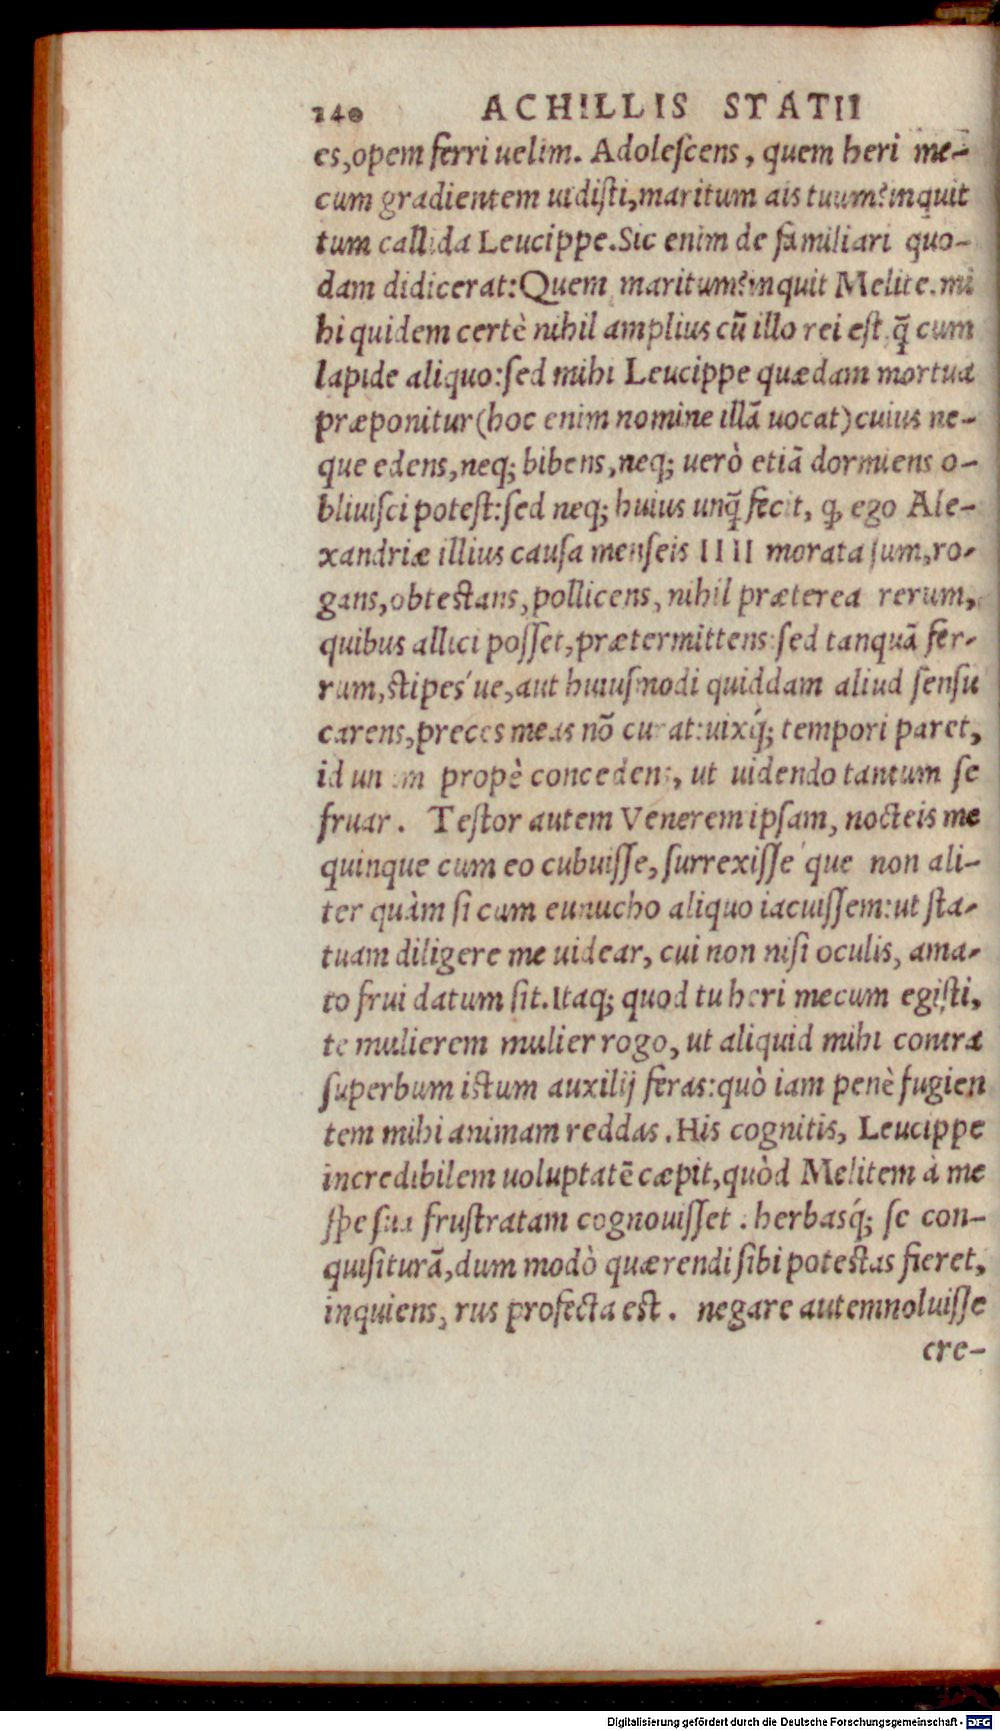 140 ACHILLIS STATII
es,opem ferri uelim. Adoleſcens, quem heri me-
cum gradientem uidiſti,maritum ais tuum?inquit
tum callida Leucippe.Sic enim de familiari quo-
dam didicerat:Quem maritum?inquit Melite.mi
hi quidem certè nihil amplius cū illo rei eſt q̄ cum
lapide aliquo:ſed mihi Leucippe quædam mortua
præponitur(hoc enim nomine illā uocat)cuius ne-
que edens,neq; bibens,neq; uerò etiā dormiens o-
bliuiſci poteſt:ſed neq; huius unq̄ fecit, ꝙ ego Ale-
xandriæ illius cauſa menſeis IIII morata ſum,ro-
gans,obteſtans,pollicens, nihil præterea rerum,
quibus allici poſſet,prætermittens:ſed tanquā fer-
rum,ſtipes'ue,aut huiuſmodi quiddam aliud ſenſu
carens,preces meas nō curat:uixq́; tempori paret,
id unum propè concedens, ut uidendo tantum ſe
fruar. Teſtor autem Venerem ipſam, nocteis me
quinque cum eo cubuiſſe, ſurrexiſſe'que non ali-
ter quàm ſi cum eunucho aliquo iacuiſſem:ut ſta-
tuam diligere me uidear, cui non niſi oculis, ama-
to frui datum ſit.Itaq; quod tu heri mecum egiſti,
te mulierem mulier rogo, ut aliquid mihi contra
ſuperbum iſtum auxilij feras:quò iam penè fugien
tem mihi animam reddas.His cognitis, Leucippe
incredibilem uoluptatē cæpit,quòd Melitem à me
ſpe ſua fruſtratam cognouiſſet. herbasq́; ſe con-
quiſiturā,dum modò quærendi ſibi poteſtas fieret,
inquiens, rus profecta eſt. negare autem noluiſſe
cre-
Digitalisierung gefördert durch die Deutsche Forschungsgemeinschaft - DFG